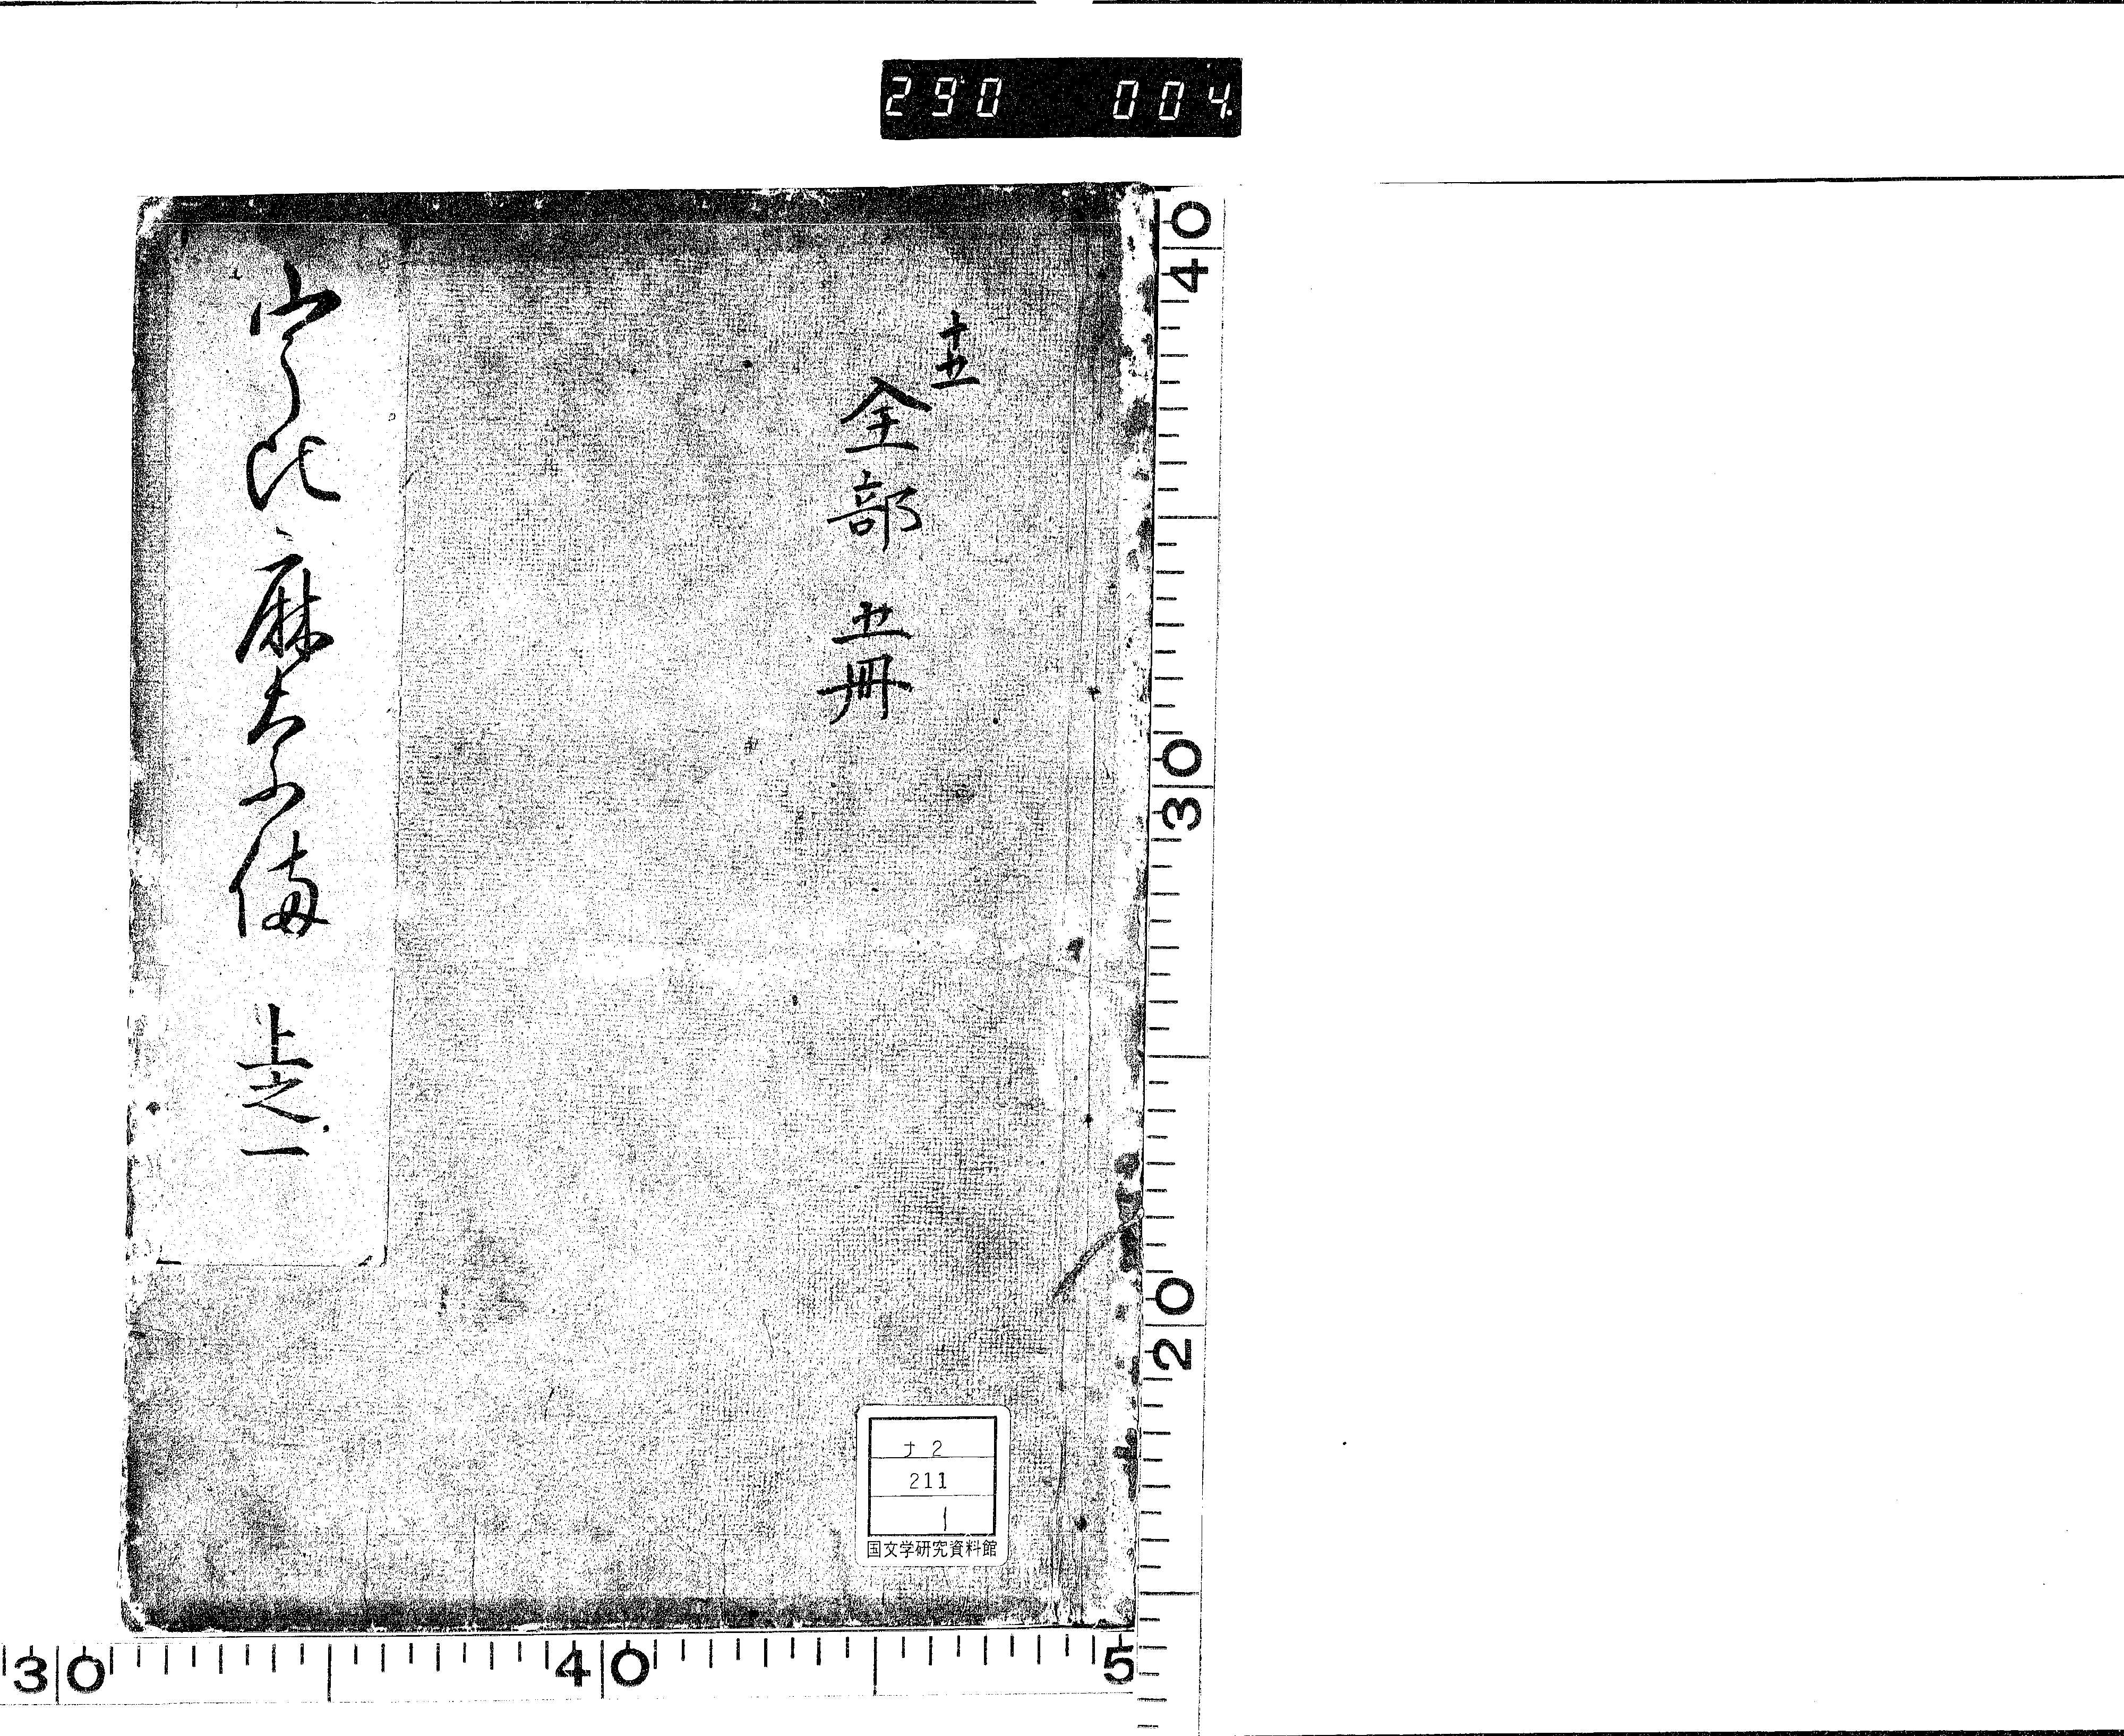 290 004.
十五
全部 五冊
宇比麻奈備 上之一
ナ2
211
1
国文学研究資料館
40
30
20
30
40
5